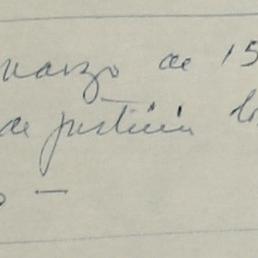 marzo de 15
de justicia lo
o —